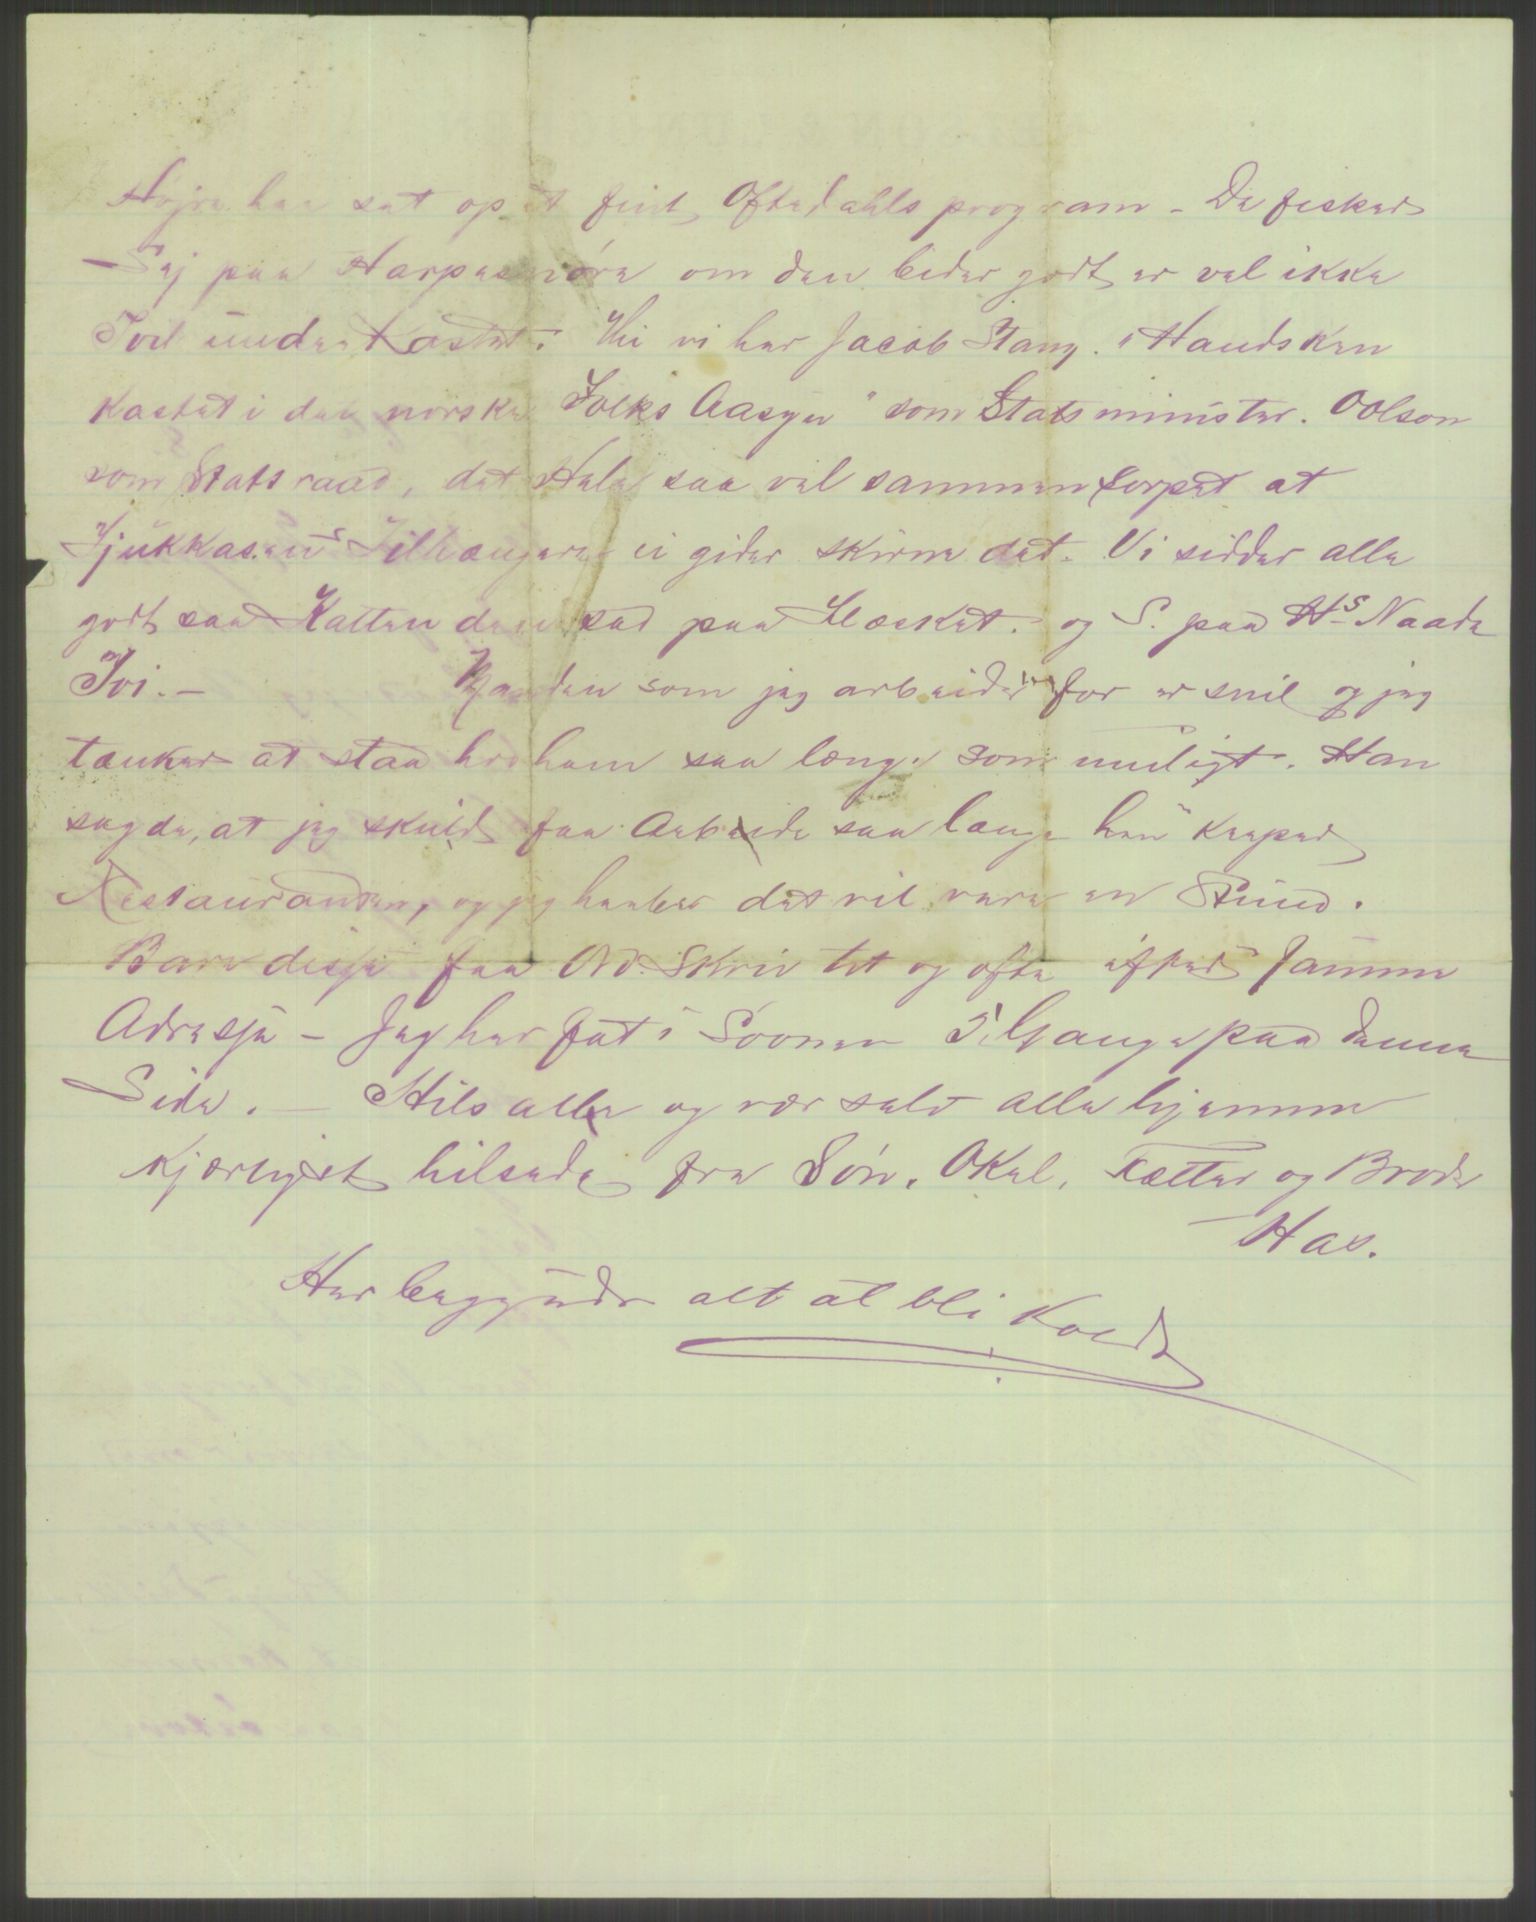 Højre har sat op et fint Oftedahls program - De fisker
Sej paa Harpesnøre om den bider godt er vel ikke
Tvil underkastet. Thi vi har Jacob Stang. "Handsken
kastet i det norske Folks Aasyn" som Statsminister. O Olson
som Statsraad, det Hele saa vel sammen at
Tilhængere ei gider skirne det. Vi sidder alle
godt saa Katten den sad paa Flæsket. og S. paa Hs Naade
Tvi. - Manden som jeg arbeider for er snil og jeg
tænker at staa hos ham saa længe som muligt. Han
sagde, at jeg skuld faa Arbeide saa længe han "keeper"
Restauranten, og jeg haaber det vil vare en Stund.
Bare disse faa Ord. Skriv tit og ofte efter samme
Adresse - Jeg har fat i Sovner 5 Gange paa denne
Side. - Hils alle og vær selv alle hjemme
kjærligst hilsede fra Søn, Okel, Fætter og Broder
Has.
Her begynder alt at bli Koldt